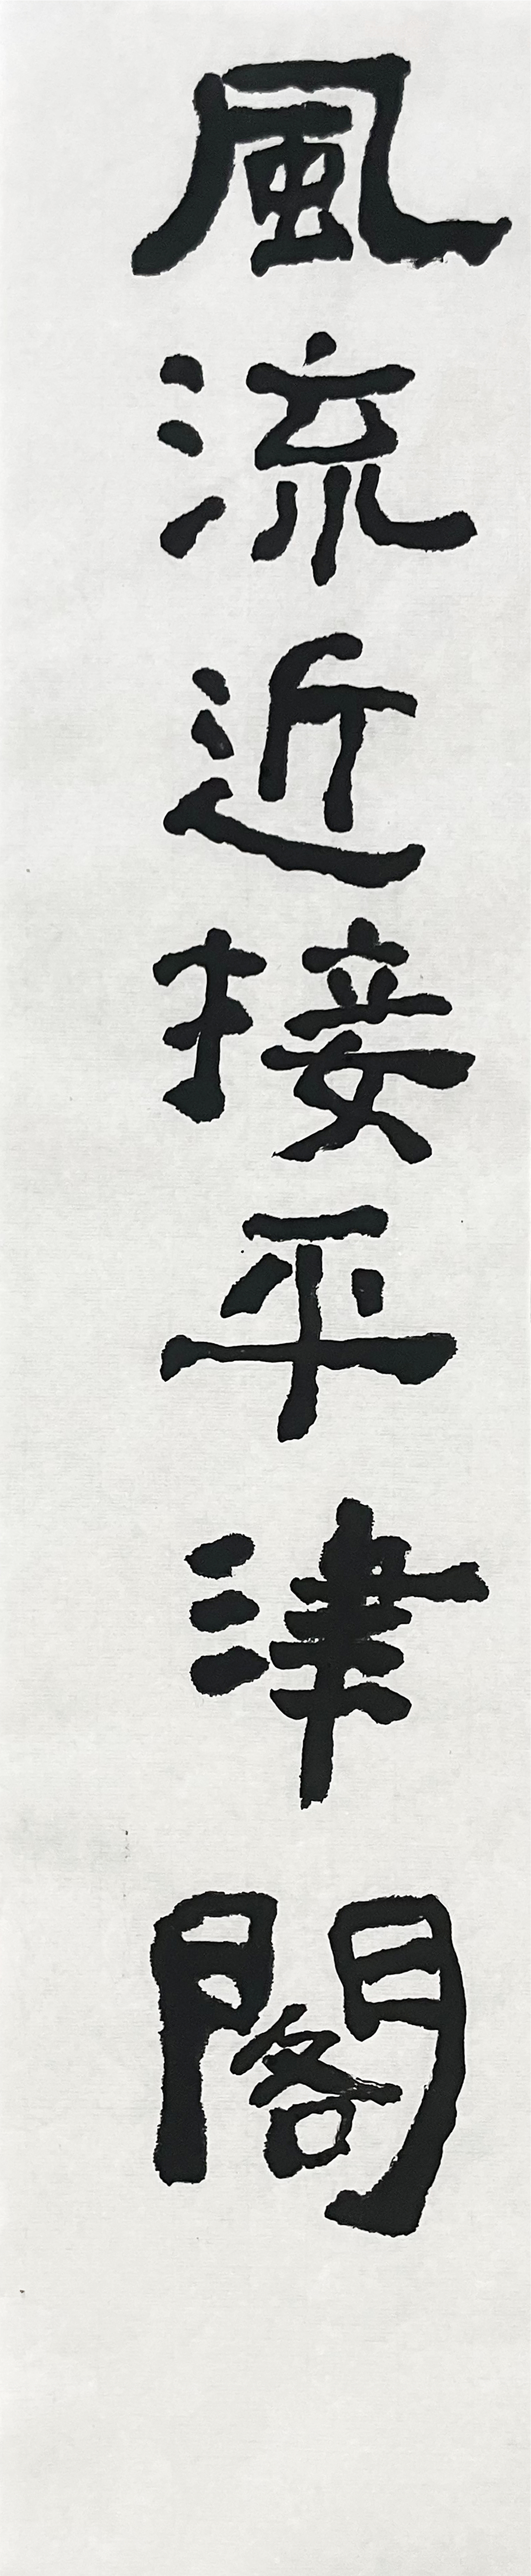 風流近接平津閣